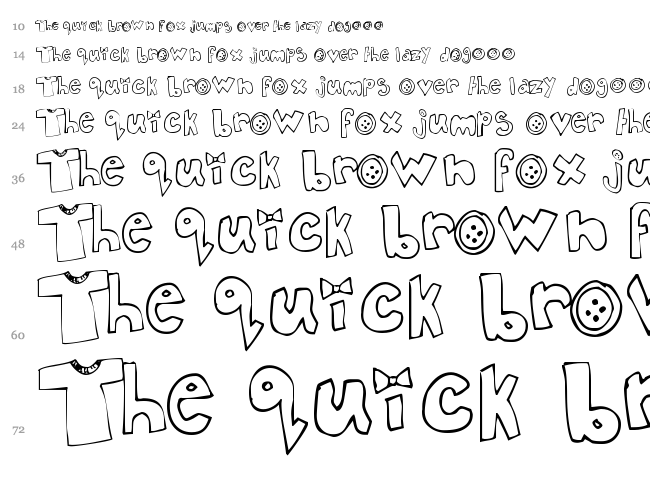 10 The quick brown fox jumps over the lazy dogooo
14 The quick brown fox jumps over the lazy dogooo
18 The quick brown fox jumps over the lazy dogooo
24 The quick brown fox jumps over the
36 The quick brown fox ju
48 The quick brown f
60 The quick brow
72 The quick br